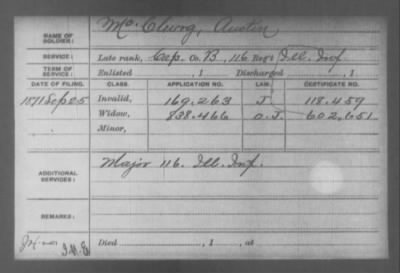 NAME OF SOLDIER: Mc Clurg, Austin
SERVICE: Late rank, Cap. Co. B, 116 Reg't Ill. Inf.
TERM OF SERVICE: Enlisted , 1 Discharged , 1
DATE OF FILING. CLASS. APPLICATION NO. LAW. CERTIFICATE NO.
1871 Sep 25 Invalid, 169.263 J 118.459
Widow, 838.466 O.J. 602.651
Minor,
ADDITIONAL SERVICES: Major 116. Ill. Inf.
REMARKS:
Died , 1 , at